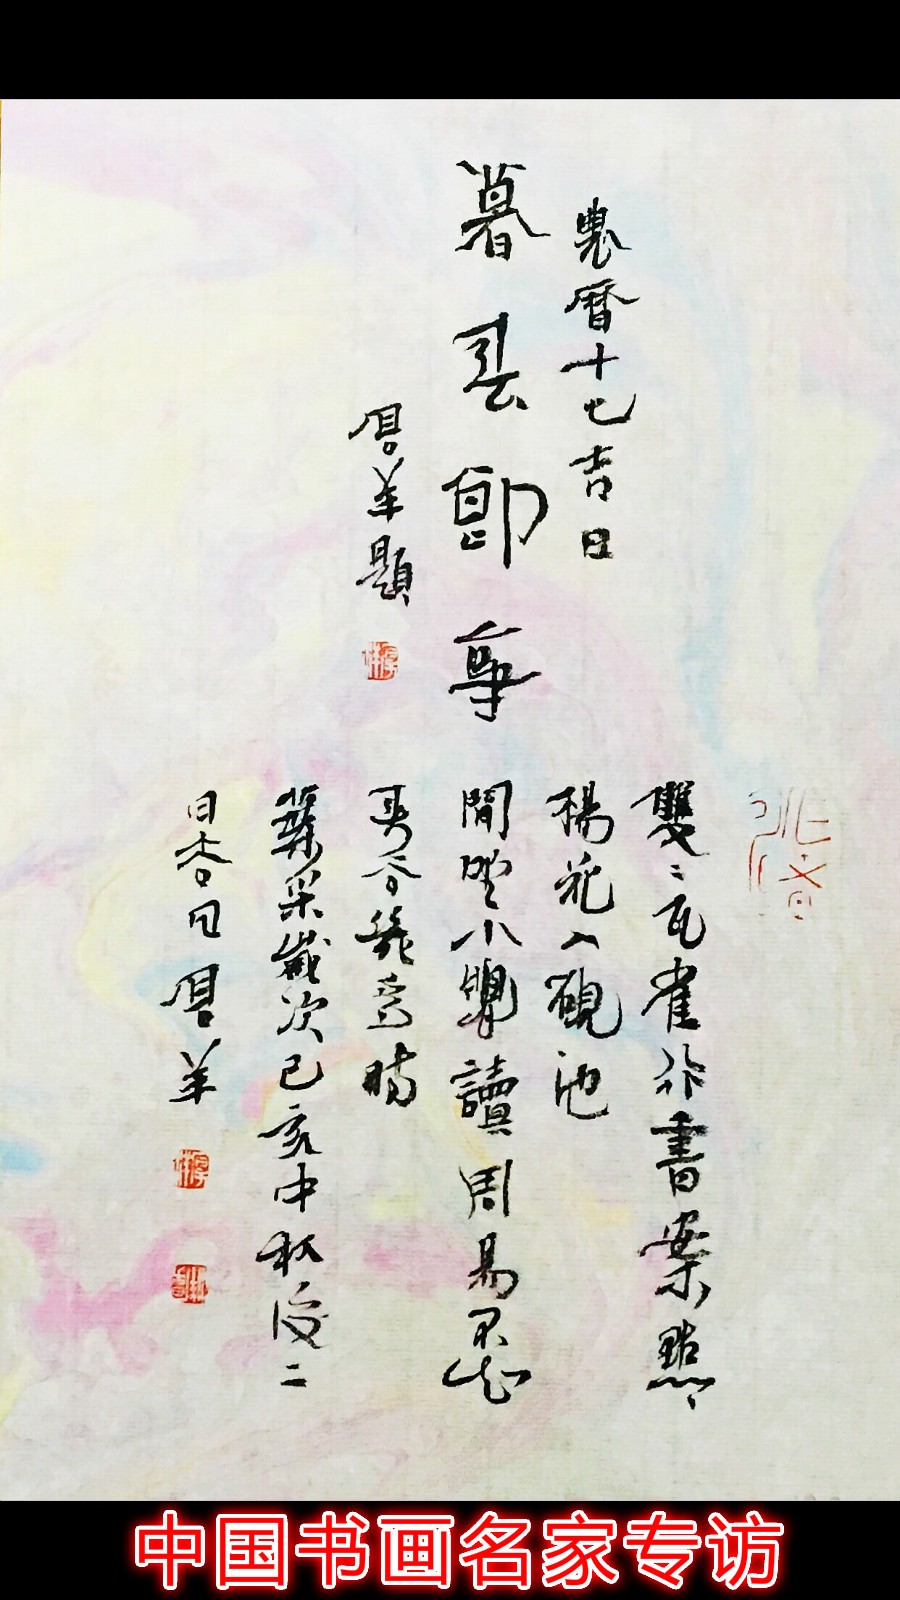 農暦十七吉日
暮春即事
羊題
雙〻瓦雀行書案點〻
楊花入硯池
閒坐小窗讀周易不知
春去幾多時
葉采歲次己亥中秋後二
日
羊
中国书画名家专访